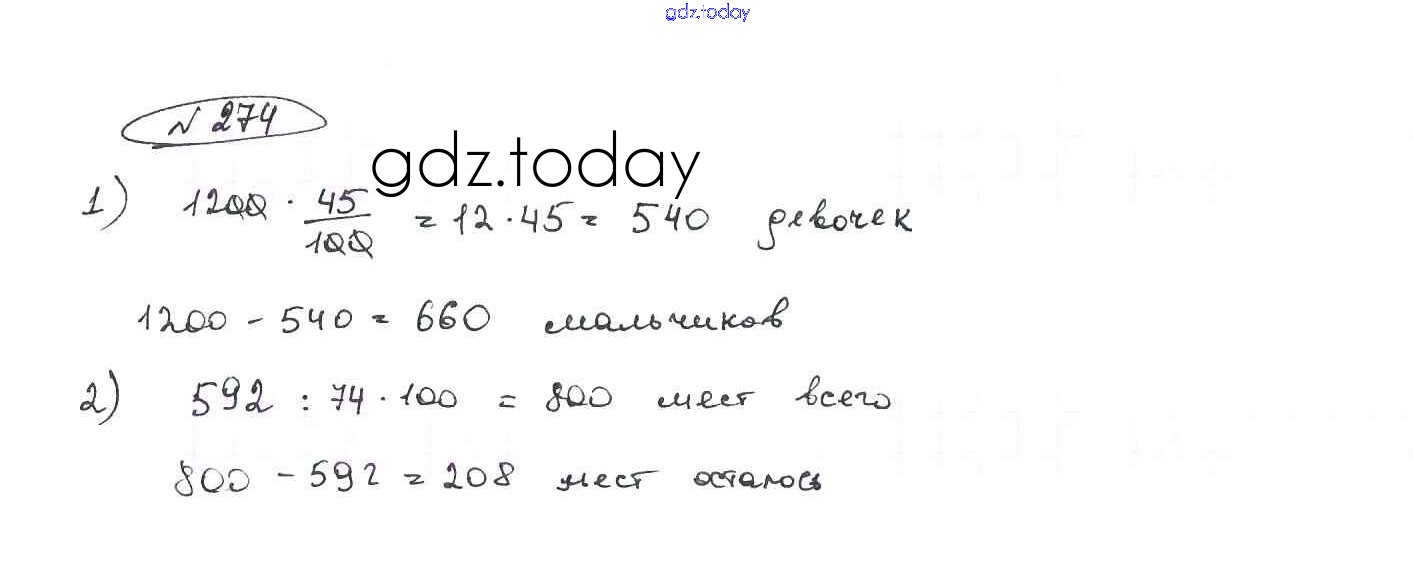 gdz.today
№ 274
gdz.today
1) 1200 · 45/100 = 12 · 45 = 540 девочек
1200 - 540 = 660 мальчиков
2) 592 : 74 · 100 = 800 мест всего
800 - 592 = 208 мест осталось